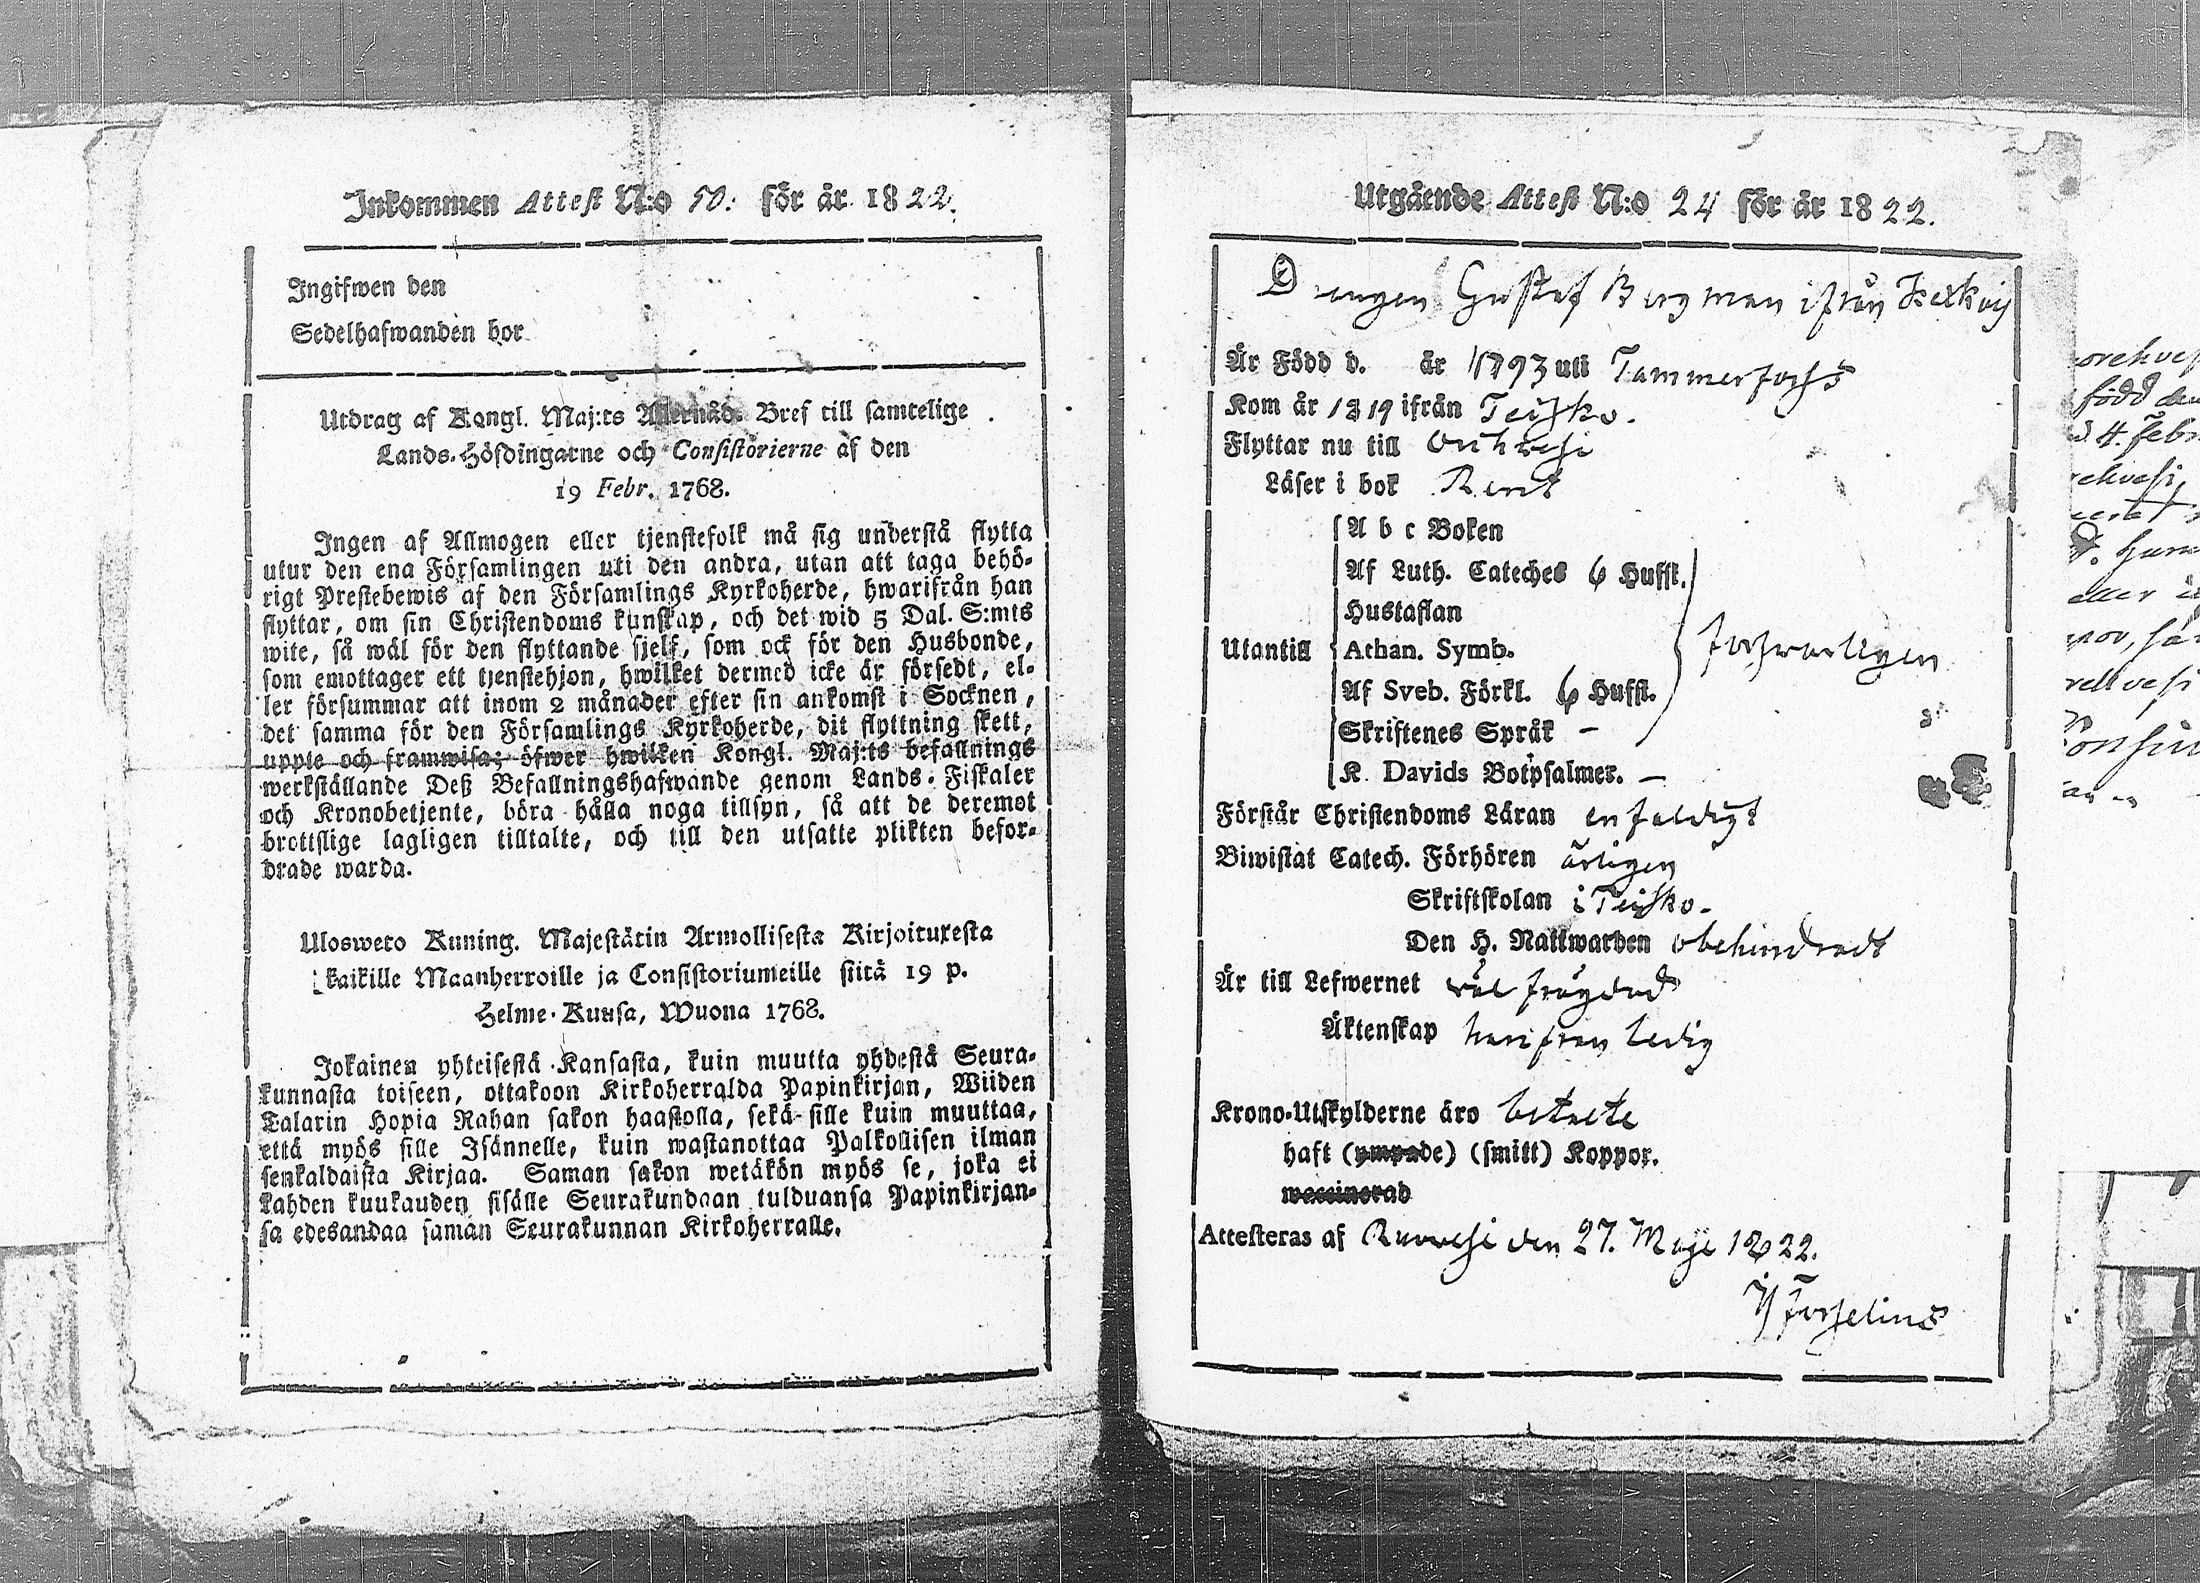 Inkommen Attest N:o 50: för år 1822.
Ingifwen den
Sedelhafwanden bor
Utdrag af Kongl. Maj:ts Allernåd. Bref till samtelige
Lands-Höfdingarne och Consistorierne af den
19 Febr. 1768.
Ingen af Allmogen eller tjenstefolk må sig understå flytta
utur den ena Församlingen uti den andra, utan att taga behö-
rigt Prestebewis af den Församlings Kyrkoherde, hwarifrån han
flyttar, om sin Christendoms kunskap, och det wid 5 Dal. S:mts
wite, så wäl för den flyttande sjelf, som ock för den Husbonde,
som emottager ett tjenstehjon, hwilket dermed icke är försedt, el-
ler försummar att inom 2 månader efter sin ankomst i Socknen,
det samma för den Församlings Kyrkoherde, dit flyttning skett,
uppte och framwisa; öfwer hwilken Kongl. Maj:ts befallnings
werkställande Deß Befallningshafwande genom Lands-Fiskaler
och Kronobetjente, böra hålla noga tillsyn, så att de deremot
brottslige lagligen tilltalte, och till den utsatte plikten befor-
drade warda.
Ulosweto Kuning. Majestätin Armollisesta Kirjoituxesta
kaikille Maanherroille ja Consistoriumeille siitä 19 p.
Helme-Kuusa, Wuona 1768.
Jokainen yhteisestä Kansasta, kuin muutta yhdestä Seura-
kunnasta toiseen, ottakoon Kirkoherralda Papinkirjan, Wiiden
Talarin Hopia Rahan sakon haastolla, sekä sille kuin muuttaa,
että myös sille Isännelle, kuin wastanottaa Palkollisen ilman
senkaldaista Kirjaa. Saman sakon wetäkön myös se, joka ei
kahden kuukauden sisälle Seurakundaan tulduansa Papinkirjan-
sa edesandaa saman Seurakunnan Kirkoherralle.
Utgående Attest N:o 24 för år 1822.
Drengen Gustaf Bergman ifrån
Är Född d. år 1793 uti Tammerfors
Kom år 1819 ifrån Teisko.
Flyttar nu till Orihvesi
Läser i bok Rent
A b c Boken
Af Luth. Cateches 6 Hufst.
Hustaflan
Utantill Athan. Symb. försvarligen
Af Sveb. Förkl. 6 Hufst.
Skriftenes Språk –
K. Davids Botpsalmer. –
Förstår Christendoms Läran enfaldigt
Biwistat Catech. Förhören årligen
Skriftskolan i Teisko.
Den H. Nattwarden obehindradt
Är till Lefwernet väl frägdad
Äktenskap härifrån ledig
Krono-Utskylderne äro betalte
haft (ympade) (smitt) Koppor.
waccinerad
Attesteras af Ruovesi den 27. Maji 1822.
Forselius